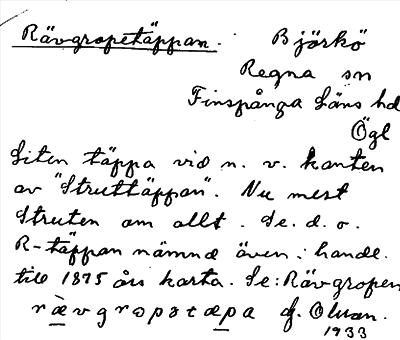 Rävgropetäppan. Björkö
Regna sn
Finspånga läns hd
Ögl
Liten täppa vid n. v. kanten
av "Struttäppan". Nu mest
Struten om allt. Se. d. o.
R-täppan nämnd även i handl.
till 1875 års karta. Se: Rävgropen.
rævgropətæpa
1933